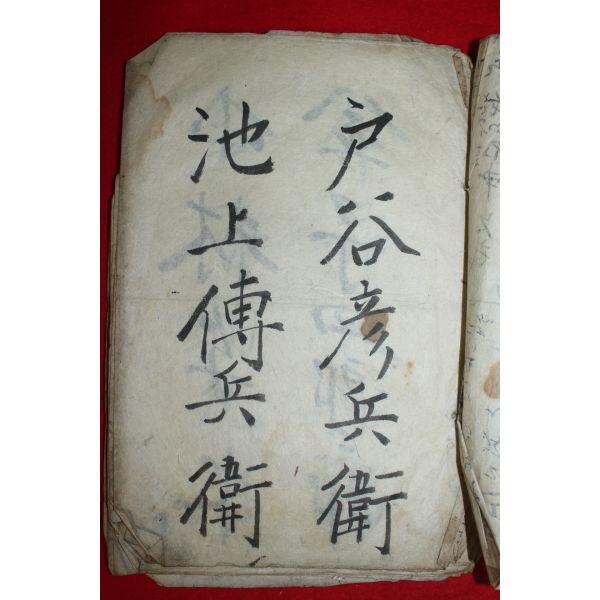 戸谷彦兵衛
池上傳兵衛